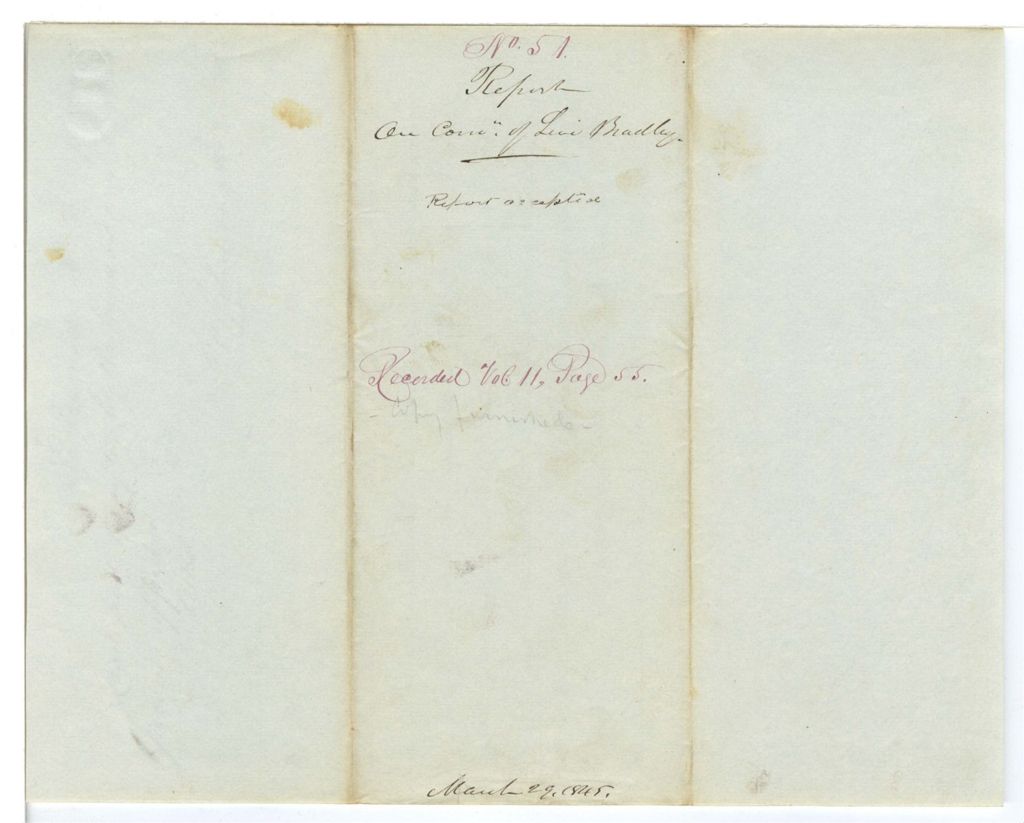 No. 51.
Report
On Comn. of Levi Bradley.
Report accepted
Recorded Vol. 11, Page 55.
- Copy furnished -
March 29. 1845.